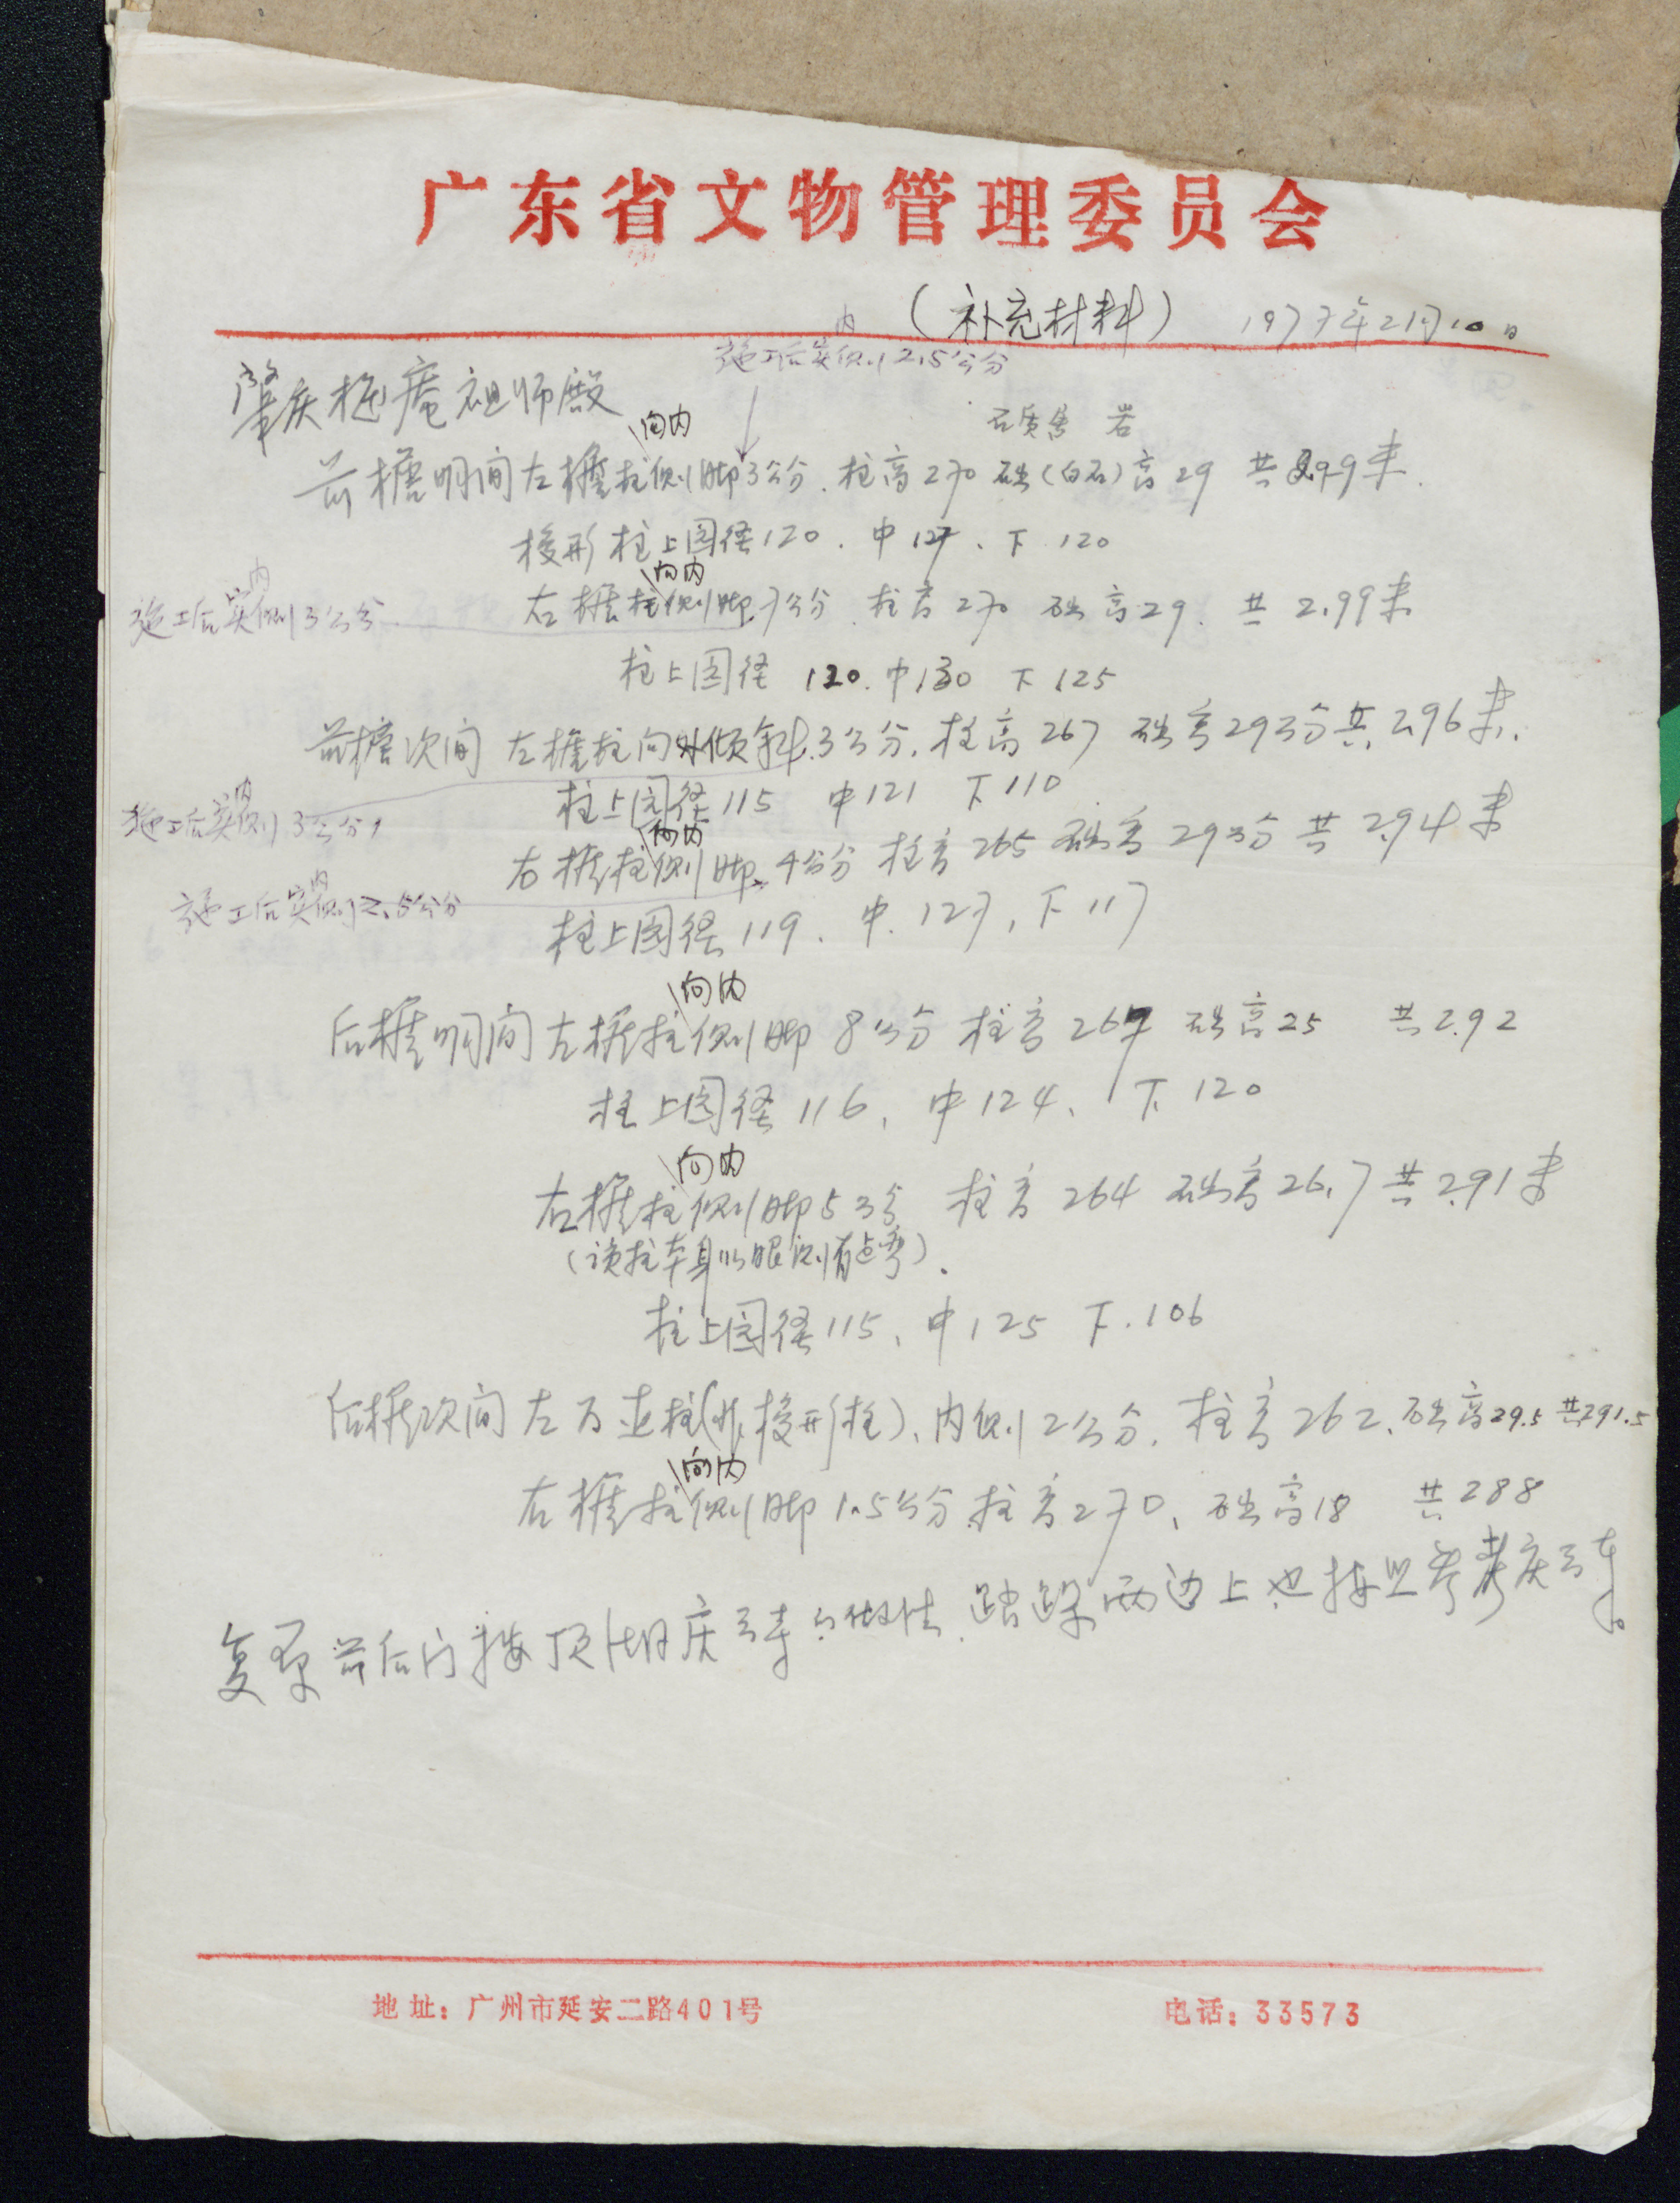 广东省文物管理委员会
（补充材料） 1977年2月10日
施工后实内侧2.5公分
肇庆梅庵祖师殿
石质 岩
前檐明间左檐柱向内侧脚3公分．柱高270 础（白石）高29 共2.99米．
梭形柱上围径120．中127、下120
施工后实内侧3公分
右檐柱向内侧脚7公分．柱高270 础高29．共2.99米
柱上围径 120．中130 下125
前檐次间 左檐柱向外倾斜3公分．柱高267 础高29公分共2.96米．
施工后实内侧3公分，
柱上围径115 中121 下110
右檐柱向内侧脚4公分 柱高265 础高29公分 共2.94米
施工后实内侧2.5公分
柱上围径119．中．127，下117
后檐明间左檐柱向内侧脚8公分 柱高267 础高25 共2.92
柱上围径116、中124、下120
右檐柱向内侧脚5公分 柱高264 础高26.7共2.91米
（该柱本身以眼测有点弯）．
柱上围径115、中125 下．106
后檐次间左 柱（非梭形柱）、内侧2公分．柱高262．础高29.5共291.5
右檐柱向内侧脚1.5公分．柱高270、础高18 共288
复原前后门 按顶湖庆云寺的做法．踏跺两边上也按照参考庆云寺。
地址：广州市延安二路401号
电话：33573